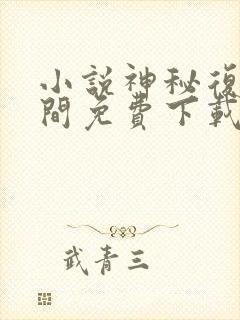 小說神秘復
間免費下載
武青三